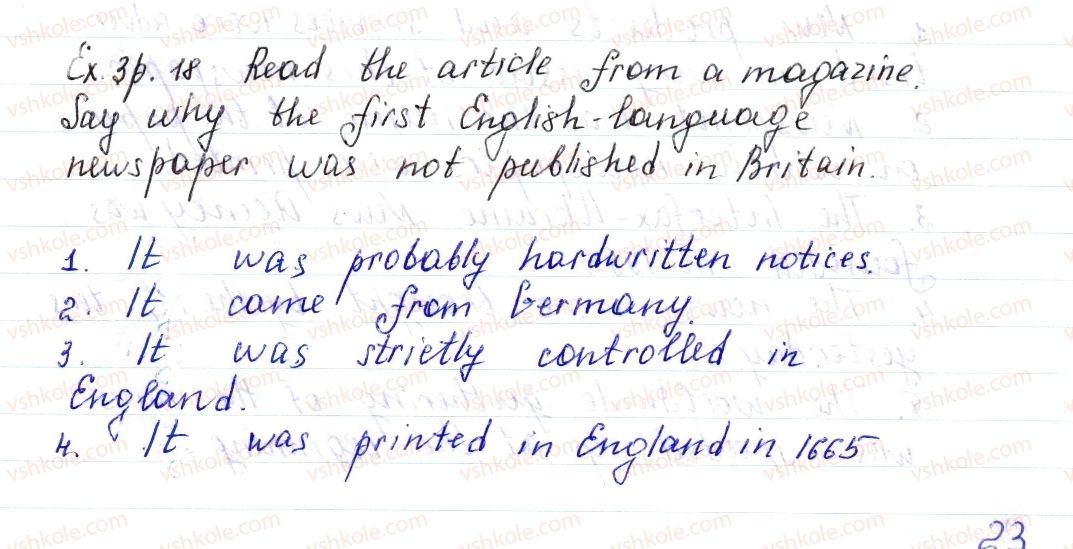 Ex. 3p. 18 Read the article from a magazine.
Say why the first English-language
newspaper was not published in Britain.
1. It was probably hardwritten notices.
2. It came from Germany.
3. It was strictly controlled in
England.
4. It was printed in England in 1665
23
vshkole.com